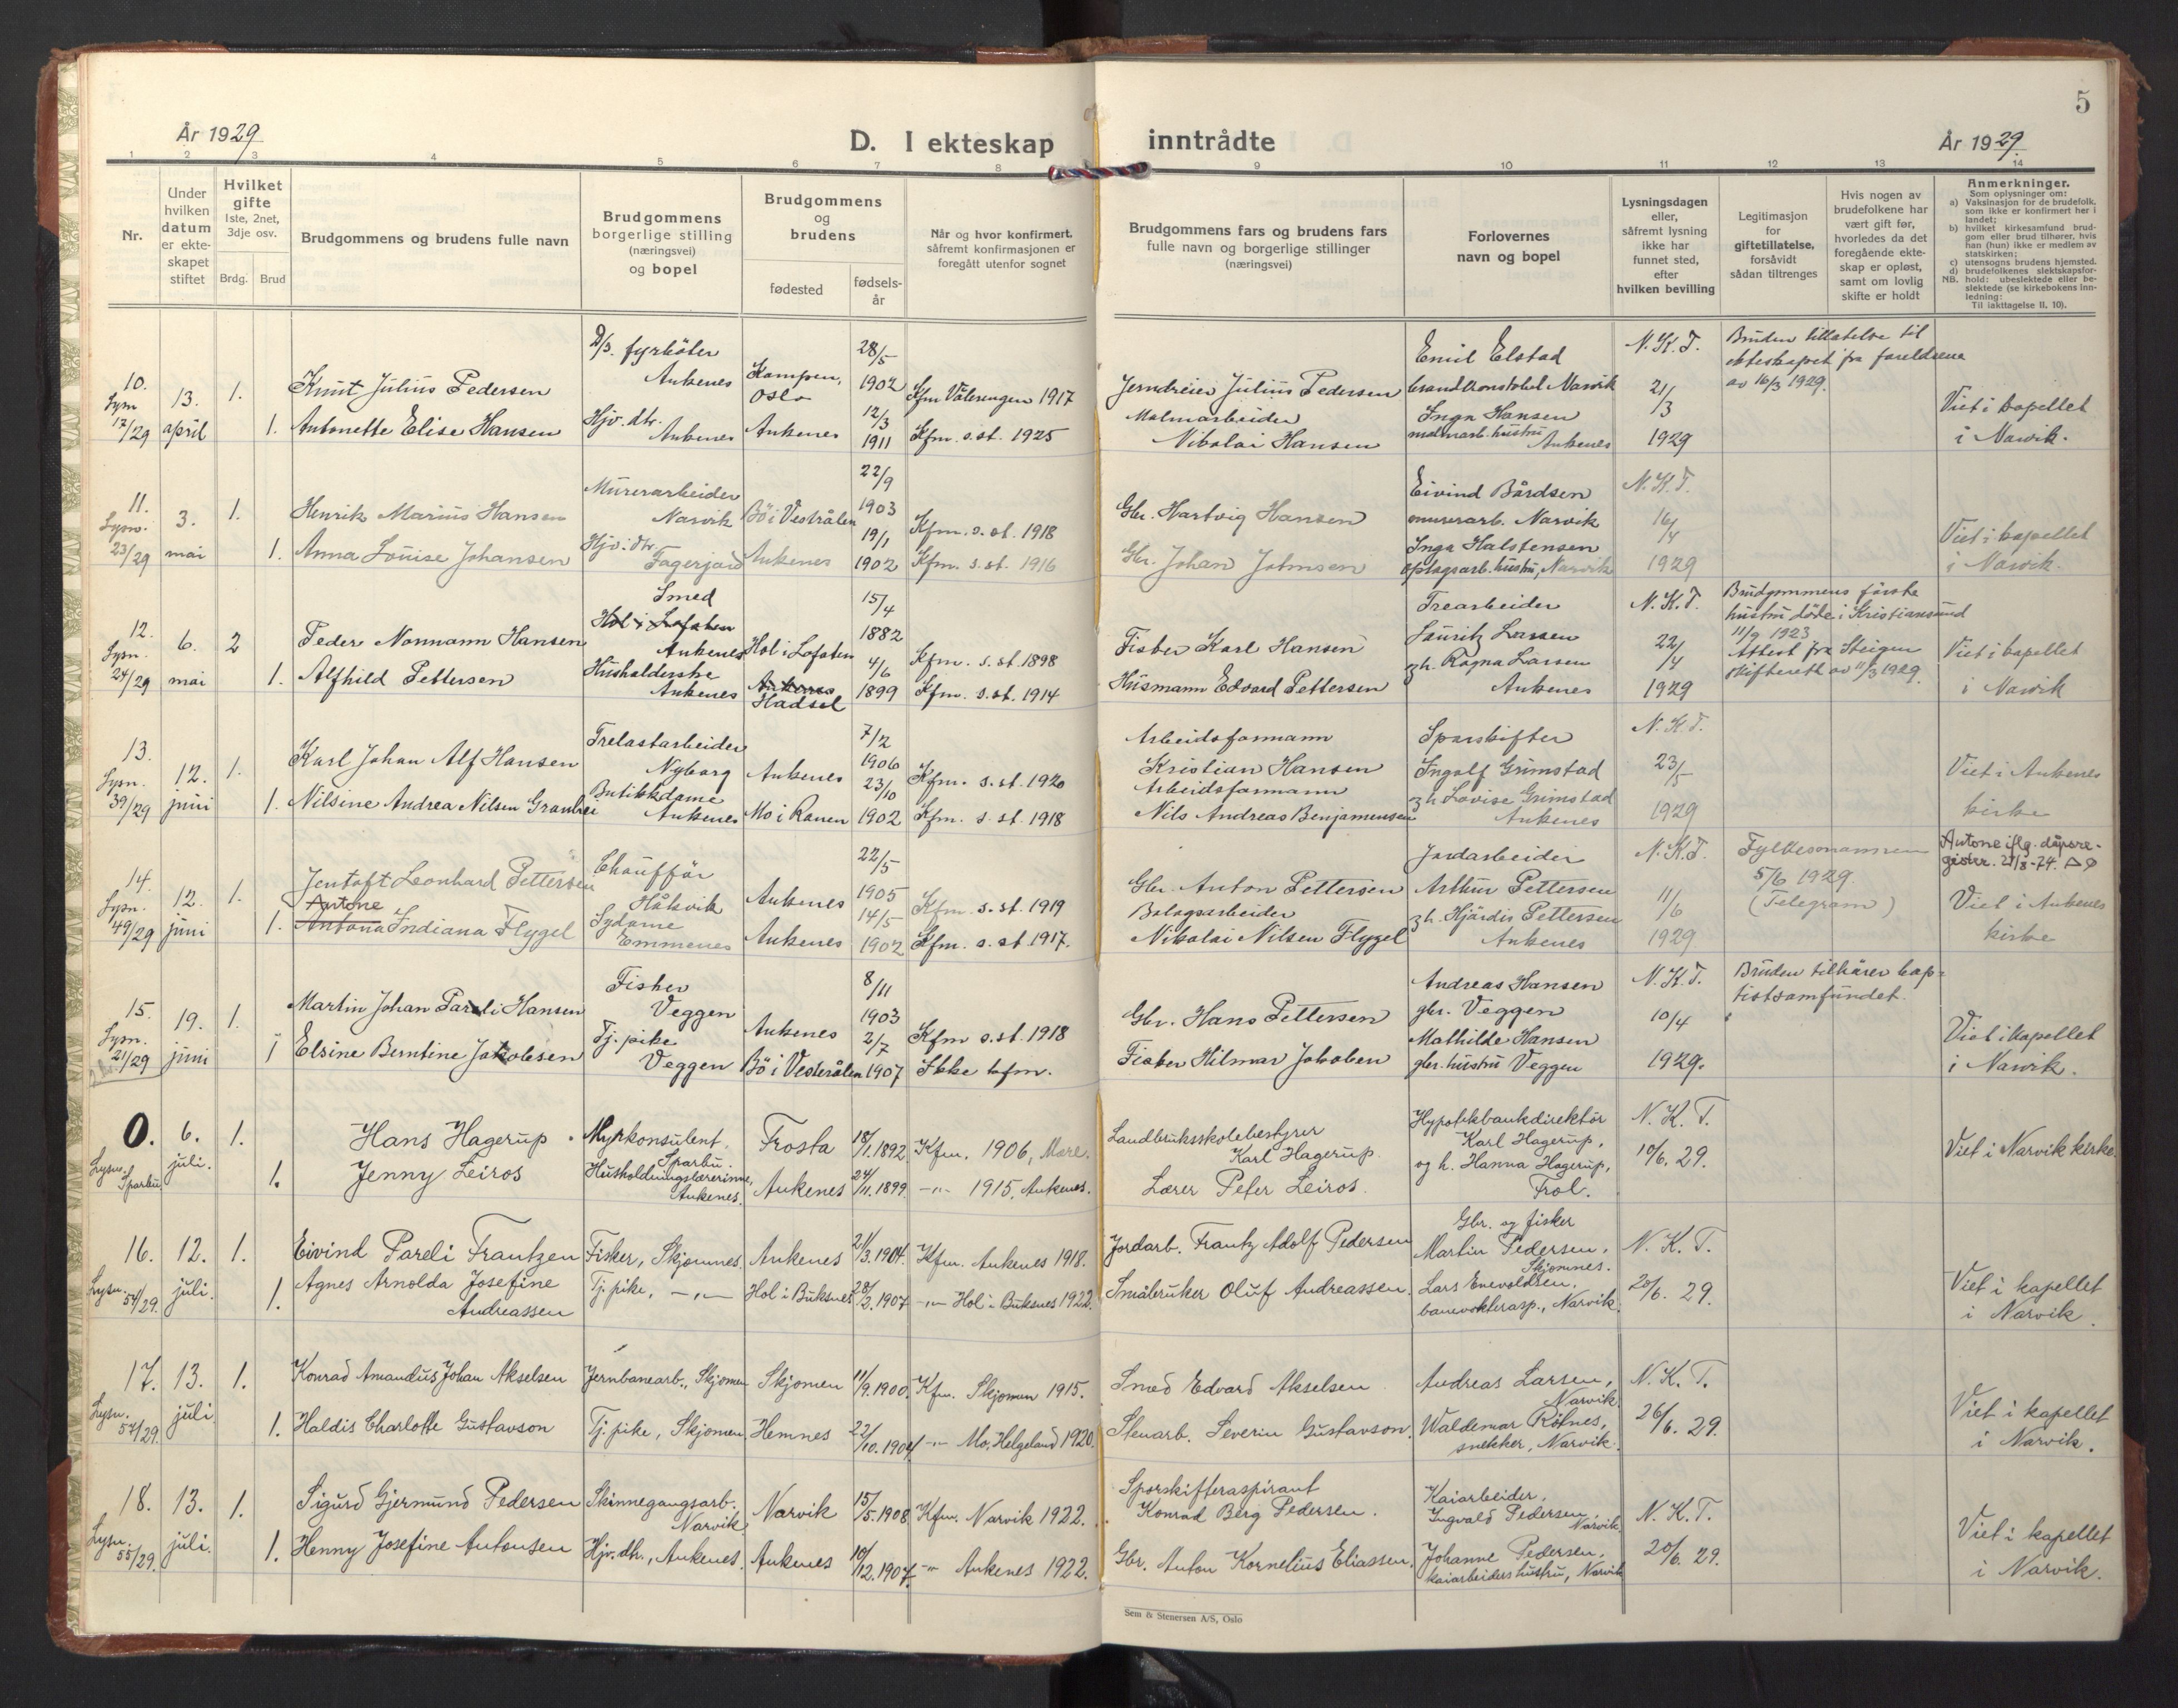 År 1929
D. I ekteskap inntrådte
År 1929.
5
1 2 3 4 5 6 7 8 9 10 11 12 13 14
Nr.
Under hvilken datum er ekteskapet stiftet
Hvilket gifte
1ste, 2net, 3dje osv.
Brdg. Brud
Brudgommens og brudens fulle navn
Brudgommens borgerlige stilling (næringsvei) og bopel
Brudgommens og brudens
fødested
fødselsår
Når og hvor konfirmert, såfremt konfirmasjonen er foregått utenfor sognet
Brudgommens fars og brudens fars fulle navn og borgerlige stillinger (næringsvei)
Forlovernes navn og bopel
Lysningsdagen eller, såfremt lysning ikke har funnet sted, efter hvilken bevilling
Legitimasjon for giftetillatelse, forsåvidt sådan tiltrenges
Hvis nogen av brudefolkene har vært gift før, hvorledes da det foregående ekteskap er opløst, samt om lovlig skifte er holdt
Anmerkninger.
Som oplysninger om:
a) Vaksinasjon for de brudefolk, som ikke er konfirmert her i landet;
b) hvilket kirkesamfund brudgom eller brud tilhører, hvis han (hun) ikke er medlem av statskirken;
c) utensogns brudens hjemsted.
d) brudefolkenes slektskapsforhold: ubeslektede eller beslektede (se kirkebokens innledning:
NB. Til iakttagelse II, 10).
10. Lysn 17/29
13. april
1. 1.
Knut Julius Pedersen
Antonette Elise Hansen
D/s. fyrböter Ankenes
Hjv. dtr. Ankenes
Kampen, Oslo
Ankenes
28/5 1902
12/3 1911
Kfm Vålerengen 1917
Kfm. s. st. 1925
Jerndreier Julius Pedersen
Malmarbeider Nikolai Hansen
Emil Elstad
brandkonstabel Narvik
Inga Hansen
malmarb. hustru Ankenes
N. K. T.
21/3 1929
Bruden tillatelse til ekteskapet fra foreldrene av 16/3 1929.
Viet i kapellet i Narvik.
11. Lysn. 23/29
3. mai
1. 1.
Henrik Marius Hansen
Anna Louise Johansen
Murerarbeider Narvik
Hjv. dtr. Fagerjord
Bö i Vestrålen
Ankenes
22/9 1903
19/1 1902
Kfm. s. st. 1918
Kfm. s. st. 1916
Gbr. Hartvig Hansen
Gbr. Johan Johnsen
Eivind Bårdsen
murerarb. Narvik
Inga Halstensen
oplagsarb. hustru, Narvik
N. K. T.
16/4 1929
Viet i kapellet i Narvik.
12. Lysn. 24/29
6. mai
2 1.
Peder Normann Hansen
Alfhild Pettersen
Smed
Hol i Lofoten
Ankenes
Husholderske Ankenes
Hol i Lofoten
Ankenes
Hadsel
15/4 1882
4/6 1899
Kfm. s. st. 1898
Kfm. s. st. 1914
Fisker Karl Hansen
Husmann Edvard Pettersen
Trearbeider
Lauritz Larsen
og h. Ragna Larsen
Ankenes
N. K. T.
22/4 1929
Brudgommens første hustru döde i Kristiansund 11/9 1923
Attest fra Steigen skifterett av 11/3 1929.
Viet i kapellet i Narvik
13. Lysn. 39/29
12. juni
1. 1.
Karl Johan Alf Hansen
Nilsine Andrea Nilsen Granhei
Trelastarbeider Nyborg
Butikkdame Ankenes
Ankenes
Mo i Ranen
7/2 1906
23/10 1902
Kfm. s. st. 1920
Kfm. s. st. 1918
Arbeidsformann Kristian Hansen
Arbeidsformann Nils Andreas Benjaminsen
Sporskifter
Ingolf Grimstad
og h Lovise Grimstad
Ankenes
N. K. T.
23/5 1929
Viet i Ankenes kirke
14. Lysn. 49/29
12. juni
1. 1.
Jentoft Leonhard Pettersen
Antone
Antona Indiana Flygel
Chauffør Håkvik
Sydame Emmenes
Ankenes
Ankenes
22/5 1905
14/5 1902
Kfm. s. st. 1919
Kfm. s. st 1917.
Gbr. Anton Pettersen
Bolagsarbeider Nikolai Nilsen Flygel
Jordarbeider
Arthur Pettersen
og h. Hjördis Pettersen
Ankenes
N. K. T.
11/6 1929
Fylkesmannen 5/6 1929 (Telegram)
Antone iflg. dåpsregister. 21/8-74.
Viet i Ankenes kirke
15. Lysn. 21/29
19. juni
1. 1
Martin Johan Pareli Hansen
Elsine Berntine Jakobsen
Fisker Veggen
Tj. pike Veggen
Ankenes
Bö i Vesterålen
8/11 1903
2/7 1907
Kfm s. st. 1918
Ikke kfm.
Gbr. Hans Pettersen
Fisker Hilmar Jakobsen
Andreas Hansen
gbr. Veggen
Mathilde Hansen
gbr. hustru Veggen
N. K. T.
10/4 1929.
Bruden tilhører baptistsamfundet.
Viet i kapellet i Narvik.
0. Lysn. Sparbu.
6. juli.
1. 1.
Hans Hagerup
Jenny Leiros
Myrkonsulent. Sparbu.
Husholdningslærerinne, Ankenes.
Frosta
Ankenes
18/1. 1892
24/11. 1899
Kfm. 1906, Mære.
-"- 1915, Ankenes.
Landbruksskolebestyrer Karl Hagerup.
Lærer Peter Leiros.
Hypotekbankdirektör
Karl Hagerup,
og h. Hanna Hagerup,
Frol.
N. K. T.
10/6. 29.
Viet i Narvik kirke.
16. Lysn. 54/29.
12. juli.
1. 1.
Eivind Pareli Frantzen
Agnes Arnolda Josefine Andreassen
Fisker, Skjomnes.
Tj. pike, -"-
Ankenes
Hol i Buksnes
21/3. 1904.
28/2. 1907
Kfm. Ankenes 1918.
-"- Hol i Buksnes 1922.
Jordarb. Frantz Adolf Pedersen
Småbruker Oluf Andreassen.
Gbr. og fisker
Martin Pedersen,
Skjomnes.
Lars Enevoldsen,
banevokterasp., Narvik.
N. K. T.
20/6. 29.
Viet i kapellet i Narvik.
17. Lysn. 57/29.
13. juli
1. 1.
Konrad Amandus Johan Akselsen
Haldis Charlotte Gustavson
Jernbanearb., Skjomen
Tj. pike, Skjomen.
Skjomen
Hemnes
11/9. 1900.
22/10. 1904.
Kfm. Skjomen 1915.
-"- Mo, Helgeland 1920.
Smed Edvard Akselsen
Stenarb. Severin Gustavson.
Andreas Larsen,
Narvik
Waldemar Röfnes,
snekker, Narvik.
N. K. T.
26/6. 29.
Viet i kapellet i Narvik.
18. Lysn. 55/29.
13. juli.
1. 1.
Sigurd Gjermund Pedersen
Henny Josefine Antonsen
Skinnegangsarb. Narvik
Hjv. dtr., Ankenes.
Narvik
Ankenes
15/5. 1908
10/12. 1907.
Kfm. Narvik 1922.
-"- Ankenes 1922.
Sporskifteraspirant Konrad Berg Pedersen.
Gbr. Anton Kornelius Eliassen.
Kaiarbeider.
Ingvald Pedersen, Narvik
Johanne Pedersen.
kaiarbeiders hustru, Narvik
N. K. T.
20/6. 29.
Viet i kapellet i Narvik.
Sem & Stenersen A/S, Oslo